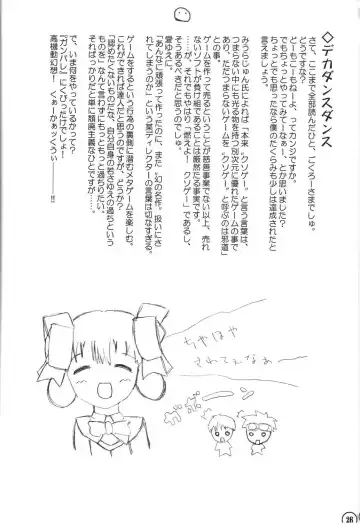 ◇デカダンスダンス
さて、ここまで全部読んだひと、ごくろーさまでしゅ。
どもこーもねーよ、ってカンジですか。
でもちょっとやってみてーなぁー、とか思いました?
ちょっとでも思ったなら僕のたくらみも少しは達成されたと
言えましょう。
みうらじゅん氏によれば「本来、クソゲー。と言う言葉は、
つまらない中にも光る物を持つ別次元に優れたゲームの事で
あり、ただつまらないゲームをクソゲー。と呼ぶのは邪道」
との事。
ゲームを作って売るということが慈善事業でない以上、売れ
ないソフトが負け組であることは厳然たる事実です。
が、それでもやはり「燃えよ!クソゲー」であるし、
そうあるべきだと思うのでしゅ。
愛ゆえに。
「あんなに頑張って作ったのに、また、幻の名作。扱いにさ
れてしまうのか」という某ディレクターの言葉は切なすぎる。
ゲームをするという行為の裏側に潜むメタゲームを楽しむ。
これができれば達人だと思うのですが、どうか?
『認めたくないものだな、自分自身の若さゆえの過ちという
ものを』なんて言わずにもっともっと過ちりたい。
そればっかりだと単に頽廃主義なひとですが……。
で、いま何をやっているかってゆうと
『ガンパレ』にくびったけでしょー!
高機動幻想!　くぁーかぁっくうぃー!!
ちやほや
されてえなぁ
26